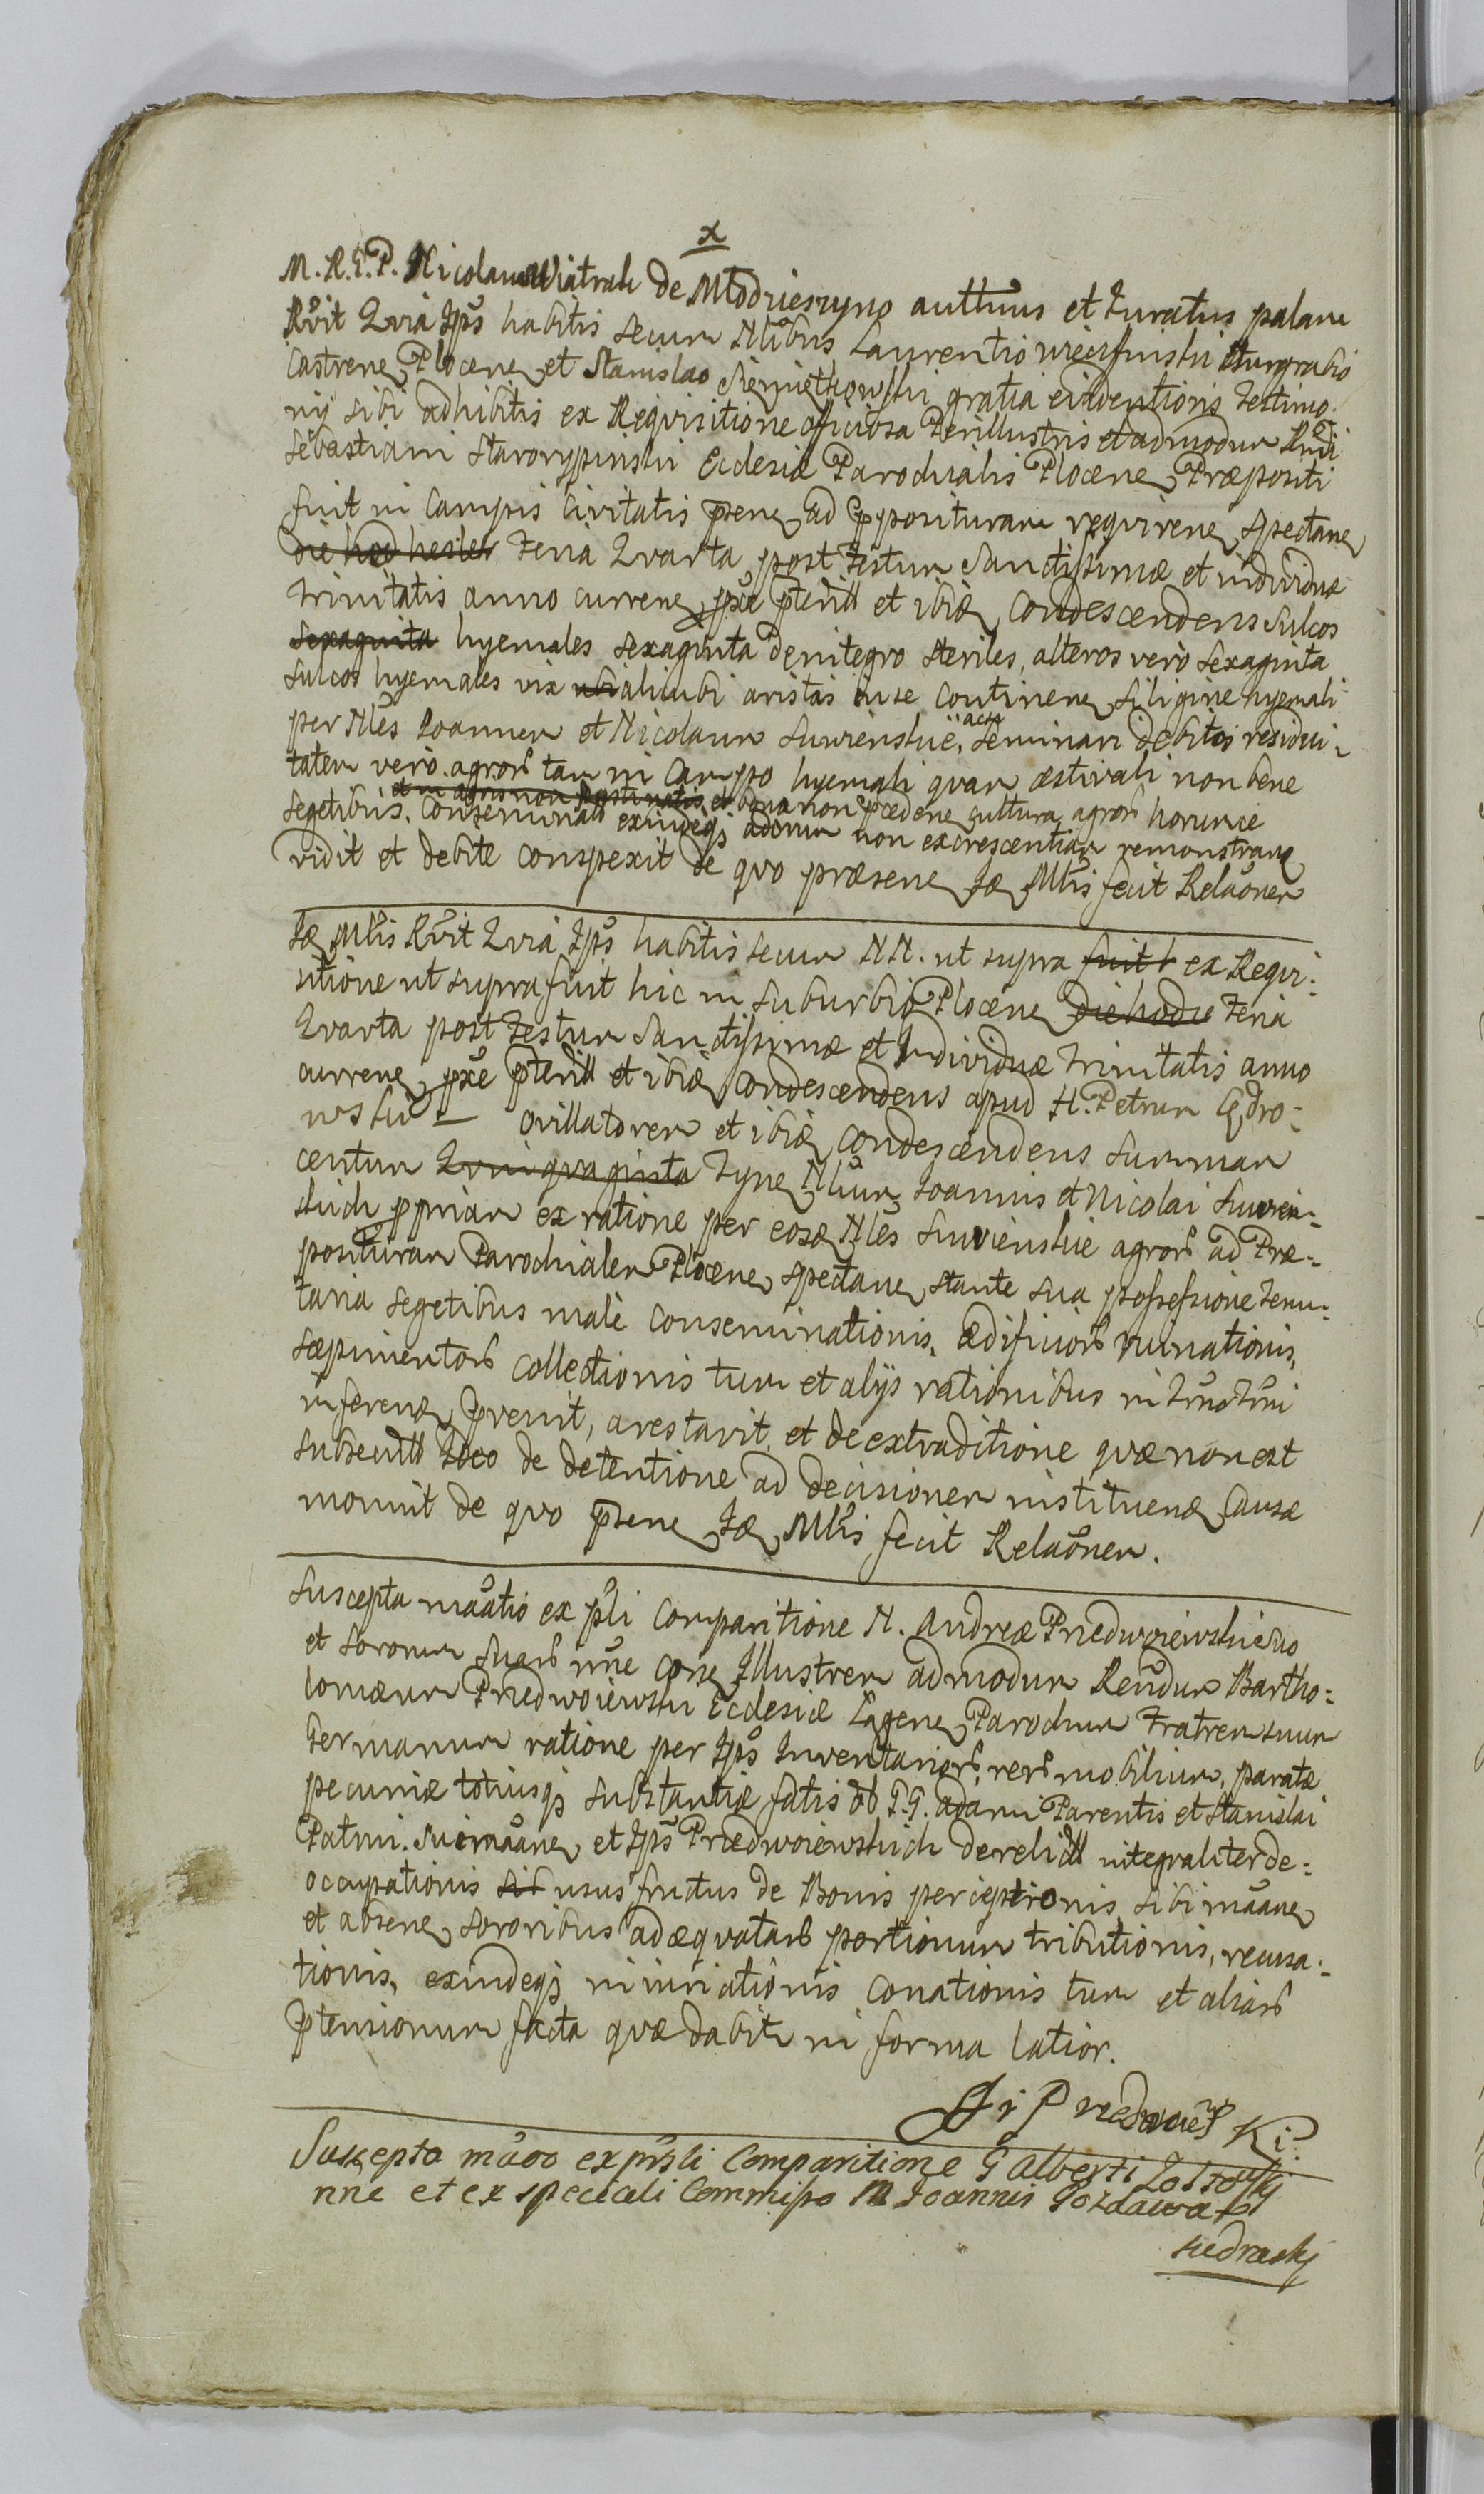 x
M. R. G. P. Nicolaus Wiatrak de Młodzieszyno autthus et Juratus palam
Rvit Qvia Ips habitis secum Nlibus Laurentio Burgrabio
Castrene Plocene et Stanislao gratia evidentioris testimo-
nij sibi adhibitis ex Reqvisitione officiosa Perillustris et admodum Rndi
Sebastiani Starorypinski Ecclesiæ Parochialis Plocene Præpositi
fuit in Campis Civitatis psene ad ppposituram reqvirene spectane
die hod hester feria Qvarta post festum Sanctissimæ et individuæ
Trinitatis anno currene pxe pterit et ibiq condescendens sulcos
sexaginta hyemales sexaginta de integro steriles, alteros vero sexaginta
sulcos hyemales vix ubi aliubi aristas in se continene siligine hyemali
per Nles Joannem et Nicolaum Suwienskie acta seminari debitos residui-
tatem vero agror tam in Campo hyemali qvam æstivali non bene
et in agris non et bona non præcedene cultura agror horunce
segetibus, Conseminatt exindeqj adorum non excrescentiam remonstrane
vidit et debite conspexit de qvo præsene Jæ Mlris fecit Relaonem
Jæ Mlris Rvit Qvia Ips habitis secum NN. ut supra fuit ex Reqvi-
sitione ut supra fuit hic in suburbio Plocene die hodie feria
Qvarta post festum Sanctissimæ et Individuæ Trinitatis anno
currene pxe pterit et ibiq condescendens apud H. Petrum
wski ovillatorem et ibiq condescendens summam
centum Qvinqvaginta Tyne Nlium Joannis et Nicolai Suwien-
skich ppriam ex ratione per eosq Nles Suwienskie agror ad Præ-
posituram Parochialem Plocene spectane stante sua possessione tenu-
taria segetibus male conseminationis, ædificior ruinationis,
sæpimentor collectionis tum et alijs rationibus in
inferene pvenit, arestavit et de extraditione qvæ non est
subsecutt de detentione ad decisionem instituene Causæ
monuit de qvo psene Jæ Mlris fecit Relaonem.
Suscepta maatio ex pli comparitione N. Andreæ Przedwoiewski suo
et sororum suar nne cone Illustrem admodum Rendum Bartho-
lomæum Przedwoiewski Ecclesiæ Parochum Fratrem suum
Germanum ratione per Ips Inventarior, rer mobilium, paratæ
pecuniæ totiusqj substantiæ fatis ob G.G. Adami Parentis et Stanislai
Patrui et Ips Przedwoiewskich derelictt integraliter de-
occupationis sib usus fructus de Bonis perceptionis sibi maane
et absene sororibus adæqvatar portionum tributionis, recusa-
tionis, exindeqj iniuriationis conationis tum et aliar
ptensionum facta qvæ dabitr in forma latior.
Suscepta maoo ex prsli Comparitione G Alberti
nne et ex speciali Commisso M Joannis Pozdawa